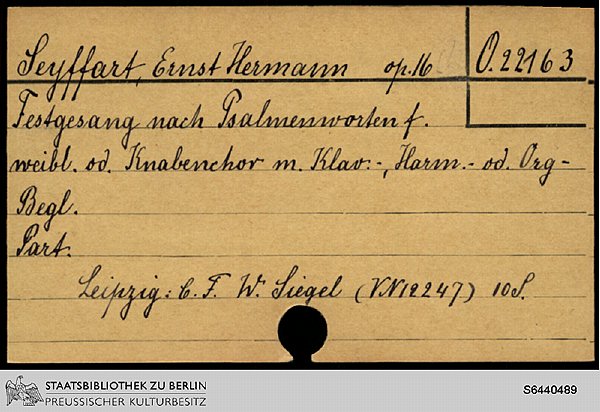 Seyffart, Ernst Hermann op. 16 O. 22163
Festgesang nach Psalmenworten f.
weibl. od. Knabenchor m. Klav.-, Harm.- od. Org-
Begl.
Part.
Leipzig: C. F. W. Siegel (VN 12247) 10 S.
STAATSBIBLIOTHEK ZU BERLIN
PREUSSISCHER KULTURBESITZ
S6440489